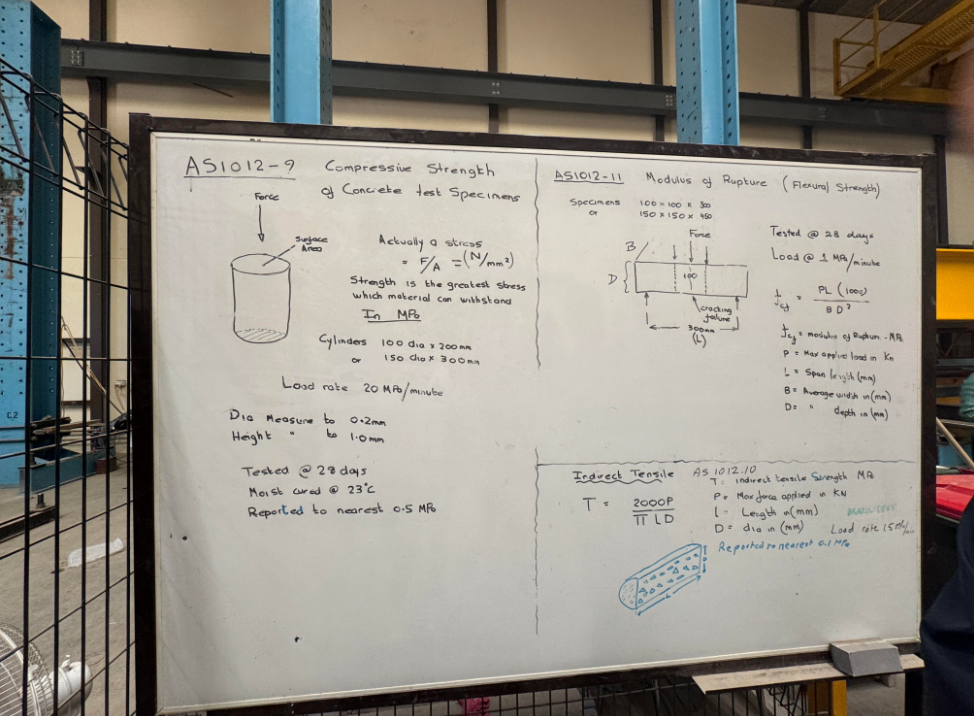 AS1012-9 Compressive Strength
of Concrete test Specimens
Force
Surface
Area
Actually a stress
= F/A = (N/mm²)
Strength is the greatest stress
which material can withstand
In MPa
Cylinders 100 dia x 200mm
or 150 dia x 300mm
Load rate 20 MPa/minute
Dia Measure to 0.2mm
Height " to 1.0mm
Tested @ 28 days
Moist cured @ 23°C
Reported to nearest 0.5 MPa
AS1012-11 Modulus of Rupture (Flexural Strength)
Specimens 100 x 100 x
or 150 x 150 x 450
Force
B
D
100
cracking
failure
300mm
(L)
Tested @ 28 days
Load @ 1 MPa/minute
fcf = PL (1000)
BD²
fcf = modulus of Rupture - MPa
P = Max applied load in Kn
L = Span length (mm)
B = Average width in (mm)
D = " depth in (mm)
Indirect Tensile AS 1012.10
T = 2000P
π LD
T = indirect tensile Strength MPa
P = Max force applied in KN
L = Length in (mm)
D = dia in (mm)
Load rate 1.5 MPa/min
Reported to nearest 0.1 MPa
L
D
C2